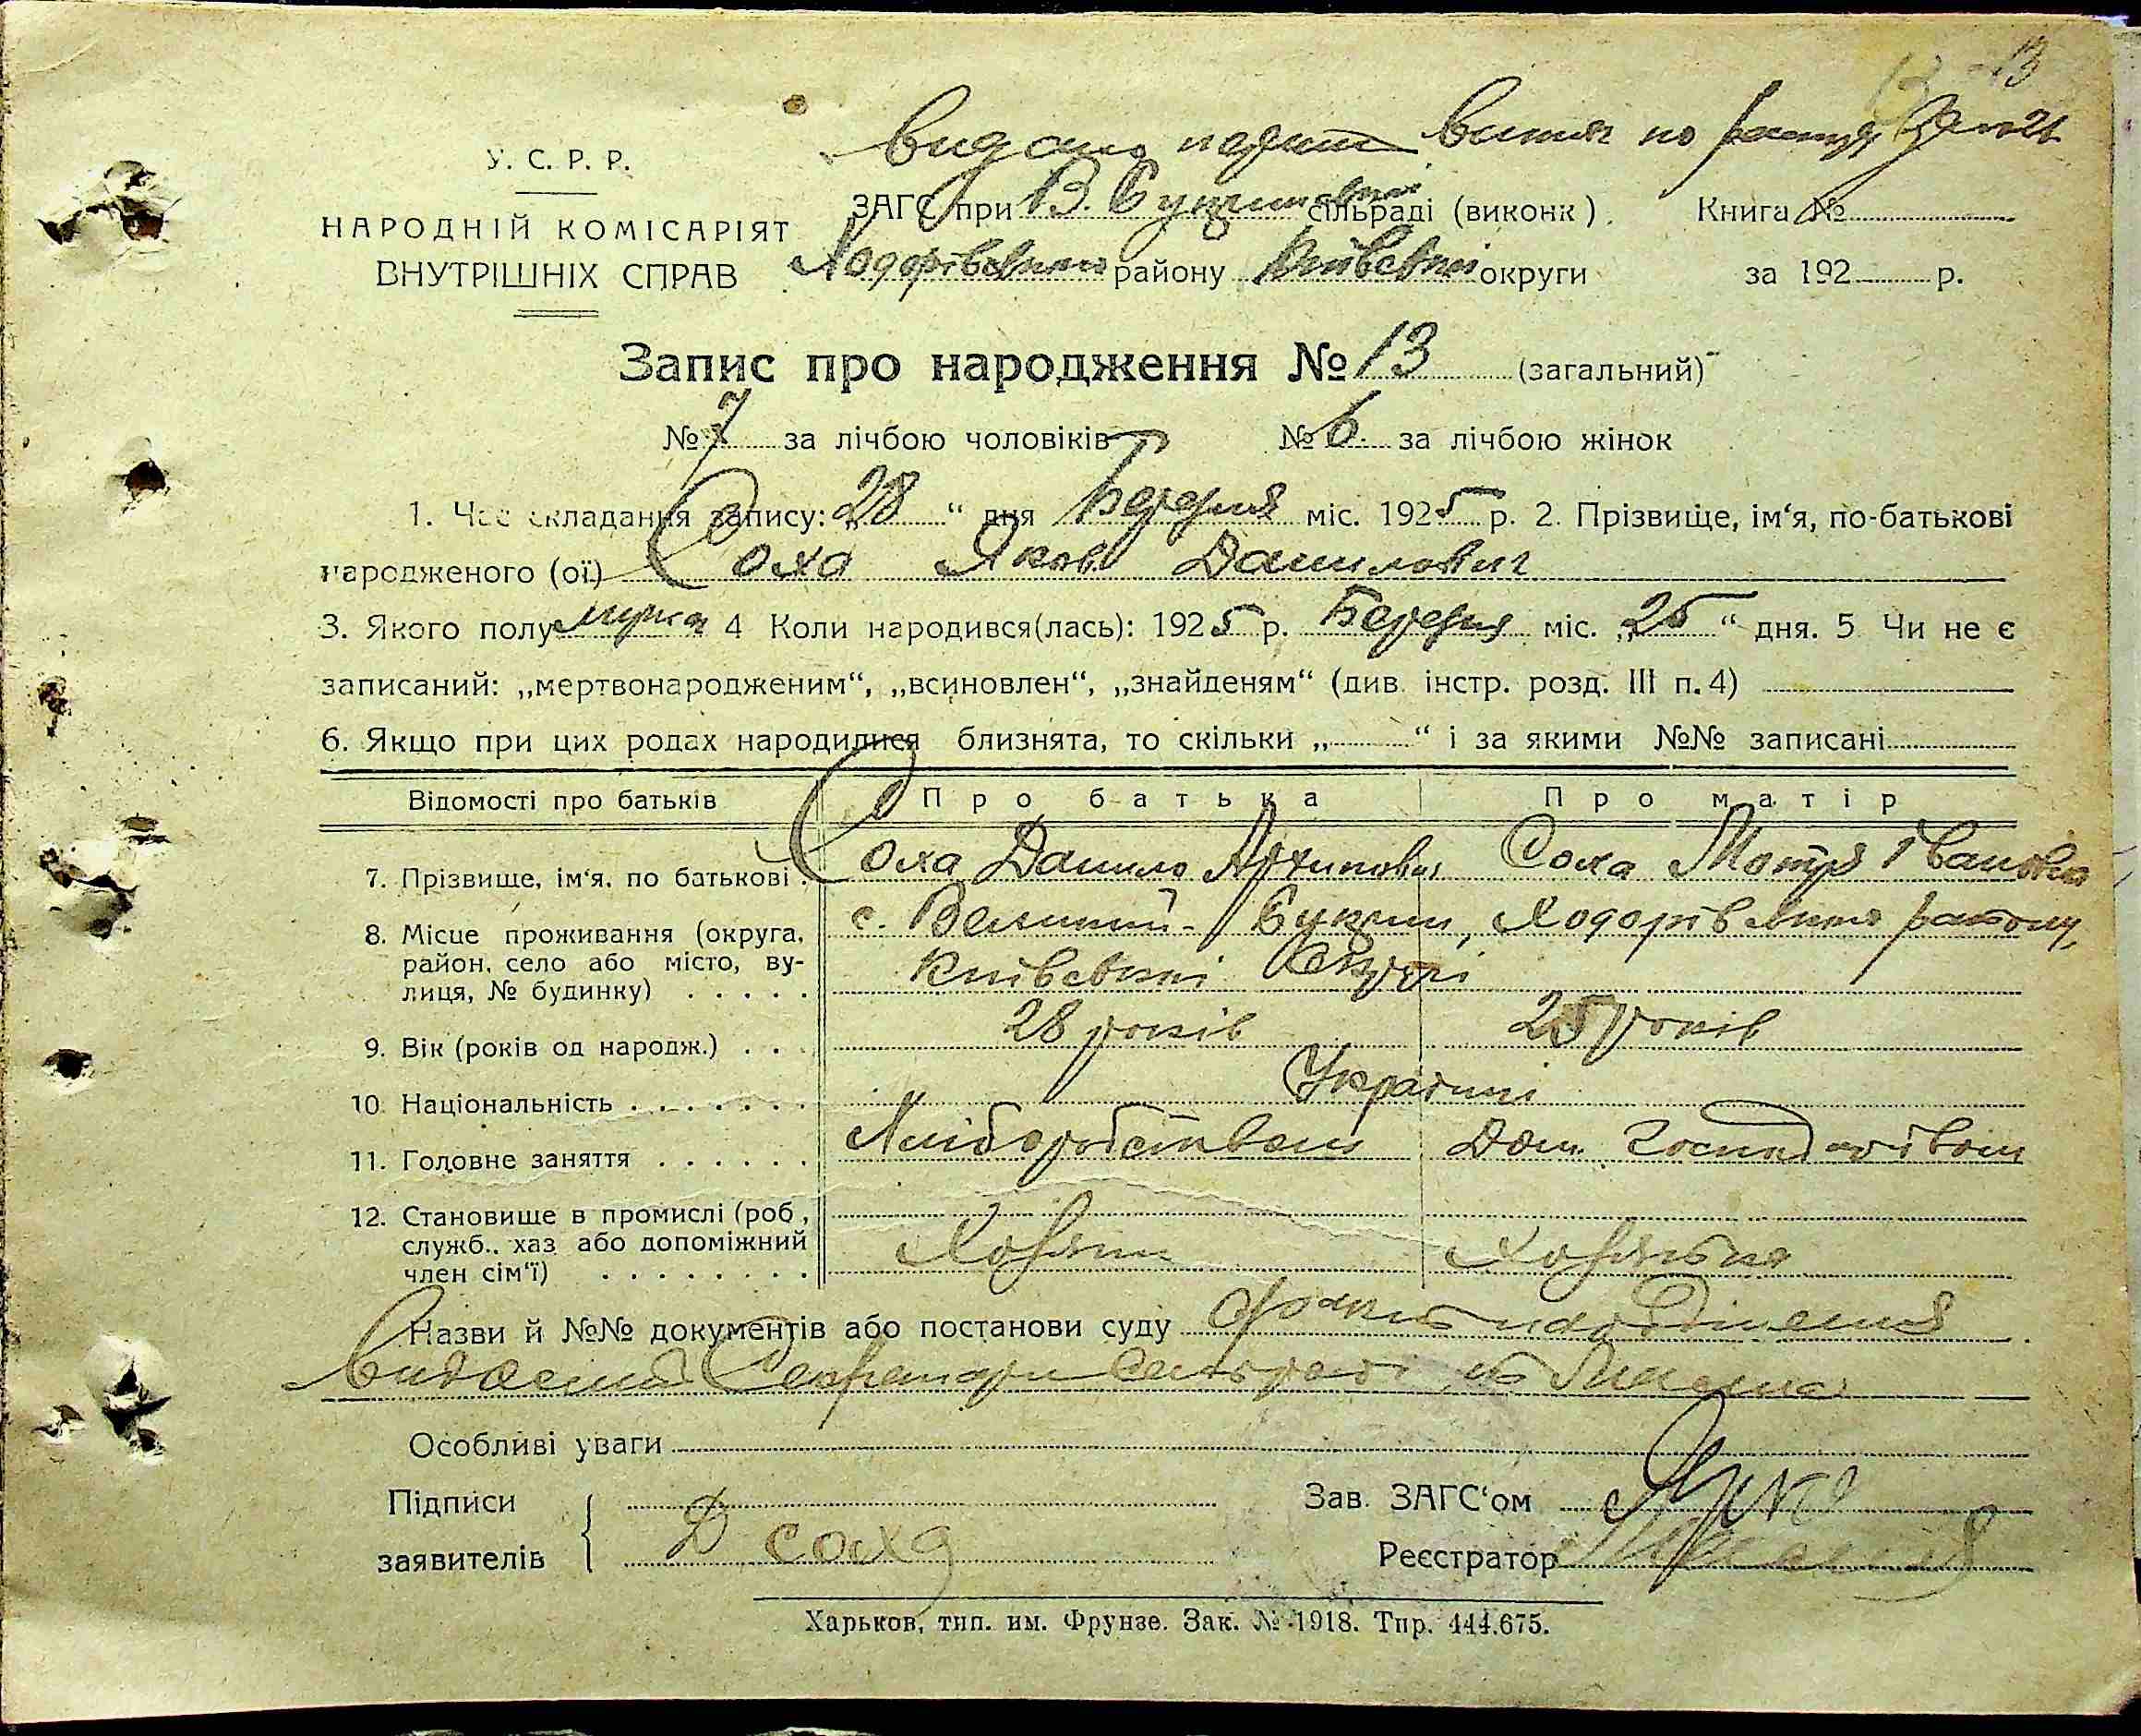 13
У. С. Р. Р.
НАРОДНІЙ КОМІСАРІЯТ
ВНУТРІШНІХ СПРАВ
видано витяг по
ЗАГС при В. Букринській сільраді (виконк). Книга №
Ходорівського району Київської округи за 192 р.
Запис про народження № 13 (загальний)
№ 7 за лічбою чоловіків № 6. за лічбою жінок
1. Час складання запису: „28“ дня Березня міс. 1925 р. 2. Прізвище, ім‘я, по-батькові
народженого (ої) Соха Яков Данилович
3. Якого полу мужск 4 Коли народився(лась): 1925 р. Березня міс. „25“ дня. 5 Чи не є
записаний: „мертвонародженим“, „всиновлен“, „знайденям“ (див. інстр. розд. III п. 4)
6. Якщо при цих родах народилися близнята, то скільки „ “ і за якими №№ записані
Відомості про батьків Про батька Про матір
7. Прізвище, ім‘я, по батькові Соха Данило Архипович Соха Мотря Івановна
8. Місце проживання (округа, район, село або місто, вулиця, № будинку) с. Великий-Букрин, Ходорівського району,
Київської Округи
9. Вік (років од народж.) 28 років 25 років
10. Національність Українці
11. Головне заняття Хліборобством Дом. Господарством
12. Становище в промислі (роб., служб., хаз. або допоміжний член сім‘ї) Хозяин Хозяйка
Назви й №№ документів або постанови суду
Секретарем сельради
Особливі уваги
Підписи
заявителів
Д соха
Зав. ЗАГС‘ом
Реєстратор
Харьков, тип. им. Фрунзе. Зак. № 1918. Тир. 444.675.